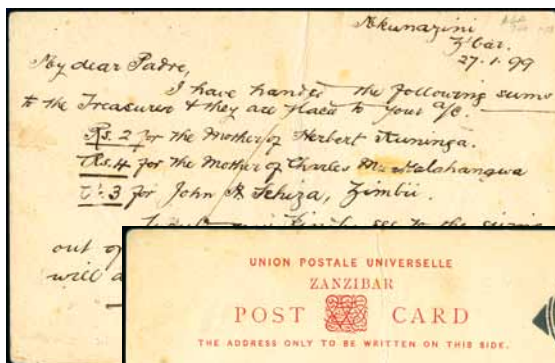 Mkunazini
Z'bar.
27.1.99
My dear Padre,
I have handed the following sums
to the Treasurer & they are placed to your a/c.
Rs. 2 for the Mother of Herbert Kuninga.
Rs. 4 for the Mother of Charles
3 for John
out of
will
UNION POSTALE UNIVERSELLE
ZANZIBAR
POST CARD
THE ADDRESS ONLY TO BE WRITTEN ON THIS SIDE.